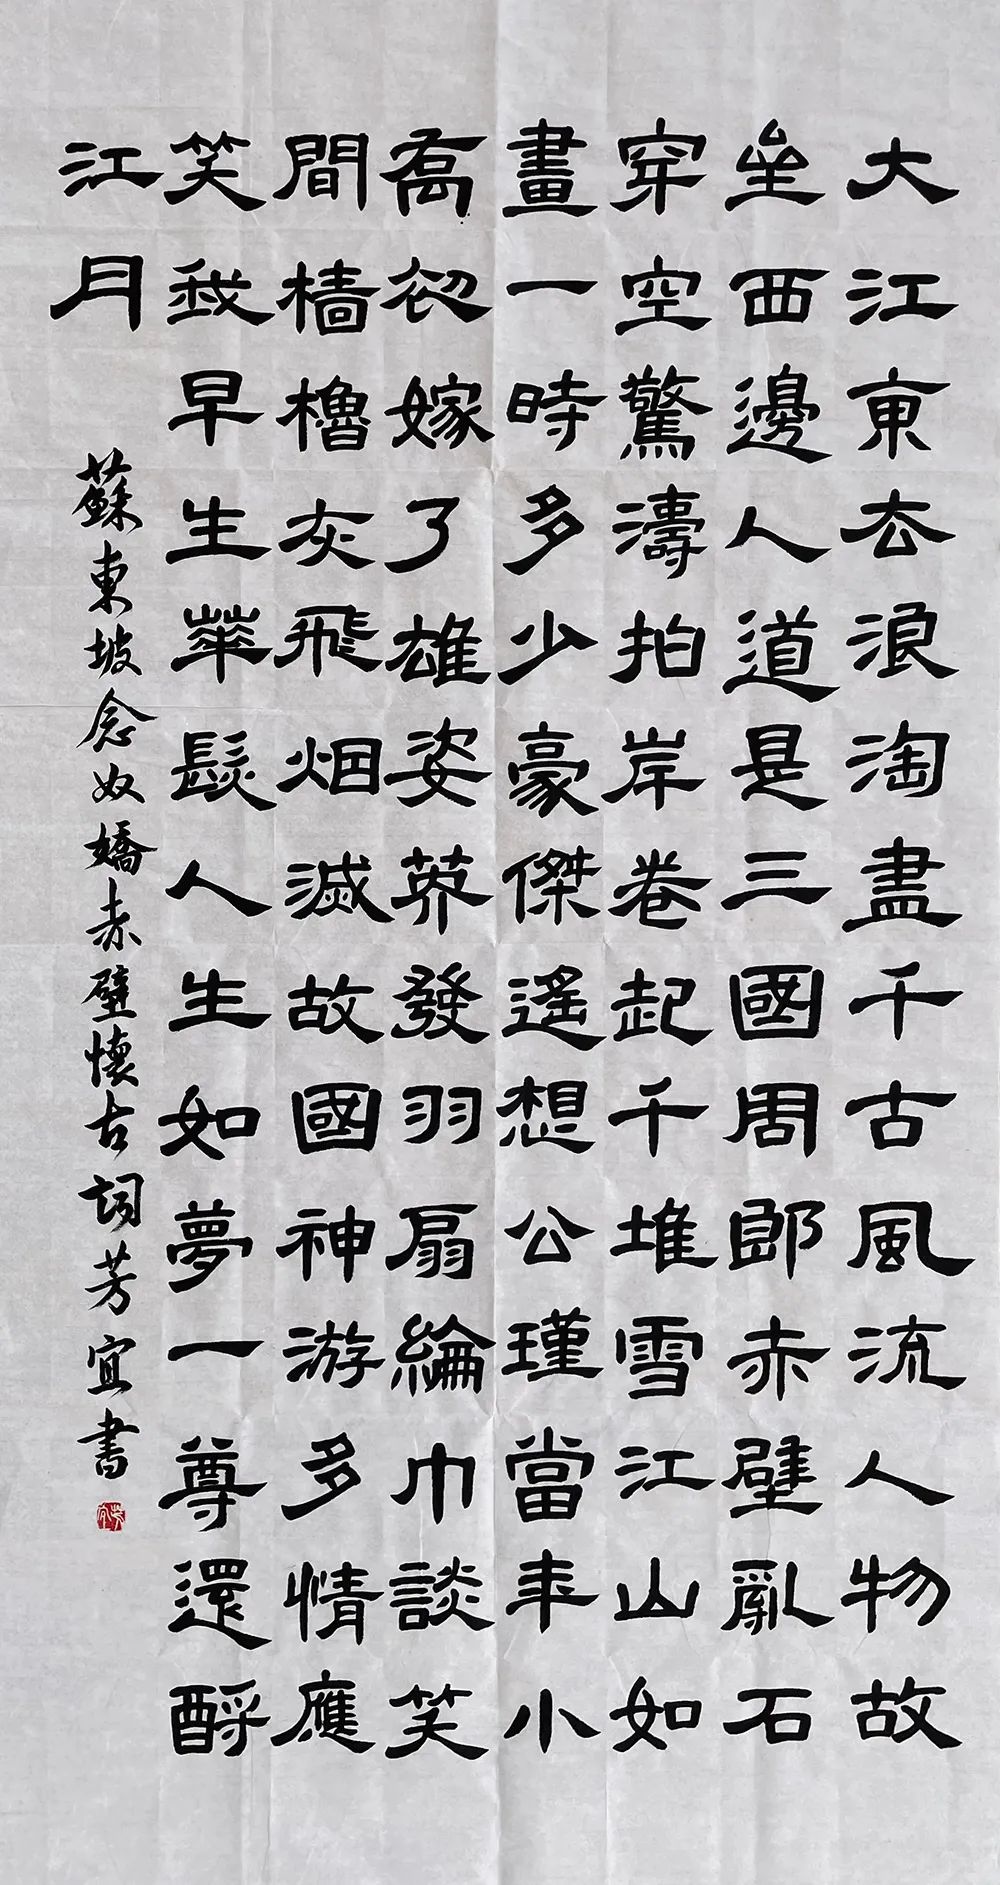 大江東去浪淘盡千古風流人物故
壘西邊人道是三國周郎赤壁亂石
穿空驚濤拍岸卷起千堆雪江山如
畫一時多少豪傑遙想公瑾當年小
喬初嫁了雄姿英發羽扇綸巾談笑
間檣櫓灰飛烟滅故國神游多情應
笑我早生華髮人生如夢一尊還酹
江月
蘇東坡念奴嬌赤壁懷古詞芳宜書
芳宜